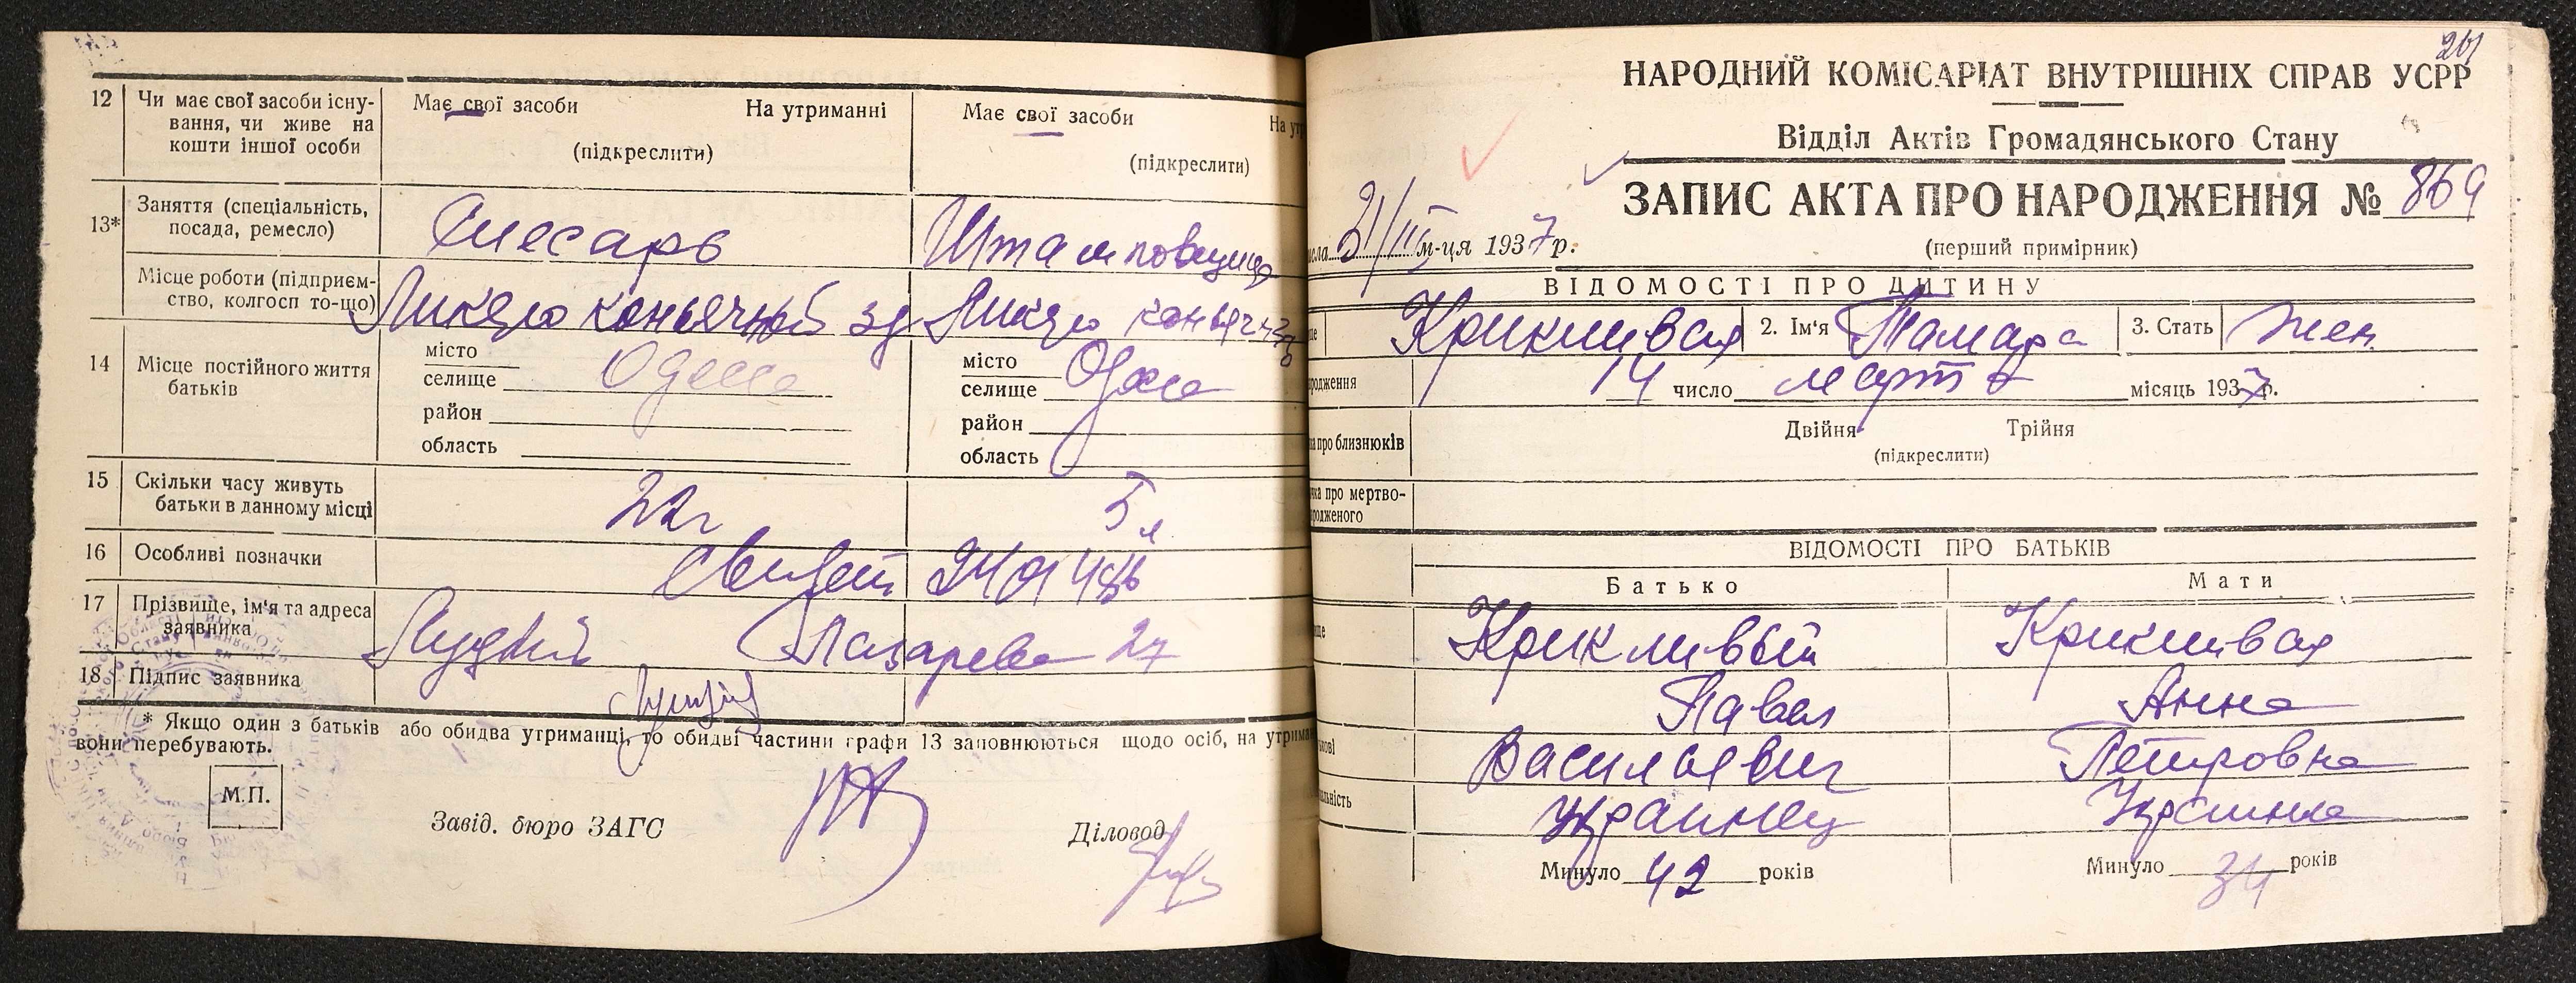 12 Чи має свої засоби існу-
вання, чи живе на
кошти іншої особи
Має свої засоби На утриманні
(підкреслити)
Має свої засоби На утр
(підкреслити)
13* Заняття (спеціальність,
посада, ремесло)
Слесарь
Штамповщица
Місце роботи (підприєм-
ство, колгосп то-що)
Ликеро коньячный зд
Ликеро коньячн
14 Місце постійного життя
батьків
місто
селище Одесса
район
область
місто
селище Одесса
район
область
15 Скільки часу живуть
батьки в данному місці
22 г
5 л
16 Особливі позначки
17 Прізвище, ім'я та адреса
заявника
Лазарева 27
18 Підпис заявника
* Якщо один з батьків або обидва утриманці, то обидві частини графи 13 заповнюються щодо осіб, на утриман
вони перебувають.
М.П.
Завід. бюро ЗАГС
Діловод
261
НАРОДНИЙ КОМІСАРІАТ ВНУТРІШНІХ СПРАВ УСРР
Відділ Актів Громадянського Стану
ЗАПИС АКТА ПРО НАРОДЖЕННЯ № 869
(перший примірник)
исла 21/III м-ця 1937 р.
ВІДОМОСТІ ПРО ДИТИНУ
ще Крикливая 2. Ім'я Тамара 3. Стать жен.
родження 14 число марта місяць 1937 р.
ка про близнюків
Двійня Трійня
(підкреслити)
чка про мертво-
родженого
ВІДОМОСТІ ПРО БАТЬКІВ
Батько Мати
ще Крикливый Крикливая
Павел Анна
ькові Васильевич Петровна
льність Украинец Украинка
Минуло 42 років Минуло 34 років